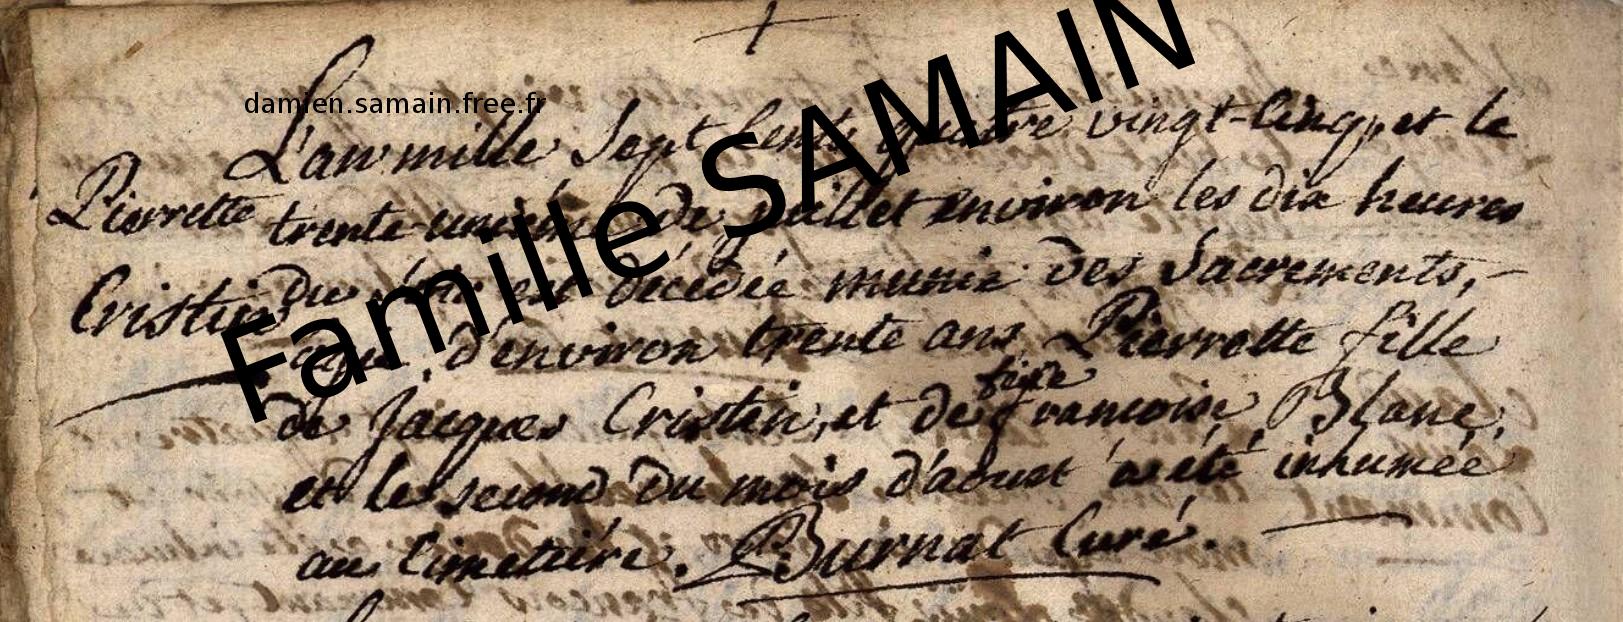 damien.samain.free.fr
Famille SAMAIN
L'an mille Sept Cents quatre vingt-Cinq, et le
Pierrette
trente unième de juillet environ les dix heures
Cristin
du soir est décédée munie des Sacrements,
agée d'environ trente ans Pierrette fille
de Jacques Cristin, et de françoise Blanc,
et le second du mois d'aoust a été inhumée
au Cimetière. Burnat Curé.